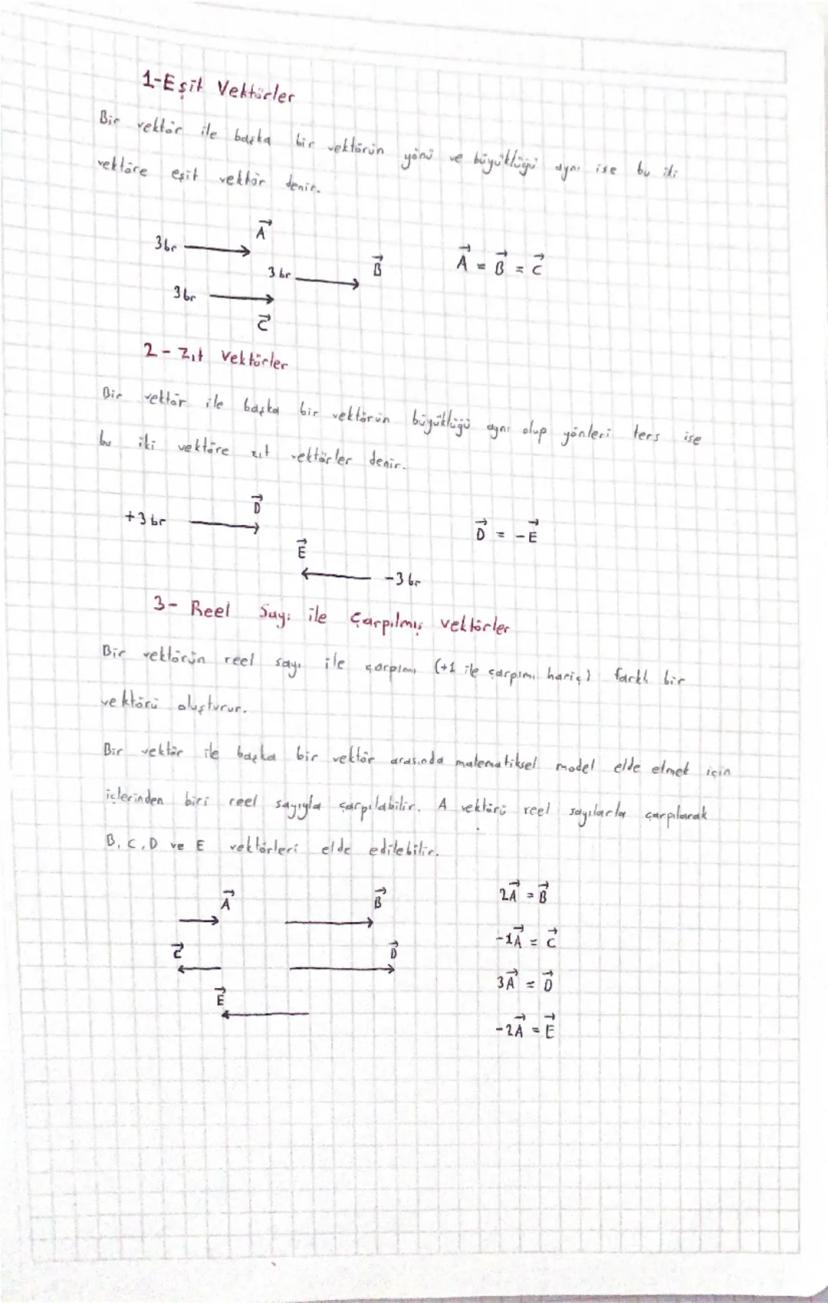 1-Eşit Vektörler
Bir vektör ile başka bir vektörün yönü ve büyüklüğü aynı ise bu iki
vektöre eşit vektör denir.
3br A⃗
3br B⃗ A⃗ = B⃗ = C⃗
3br
C⃗
2-Zıt Vektörler
Bir vektör ile başka bir vektörün büyüklüğü aynı olup yönleri ters ise
bu iki vektöre zıt vektörler denir.
+3br D⃗ D⃗ = -E⃗
E⃗
-3br
3- Reel Sayı ile Çarpılmış Vektörler
Bir vektörün reel sayı ile çarpımı (+1 ile çarpımı hariç) farklı bir
vektörü oluşturur.
Bir vektör ile başka bir vektör arasında matematiksel model elde etmek için
içlerinden biri reel sayıyla çarpılabilir. A vektörü reel sayılarla çarpılarak
B, C, D ve E vektörleri elde edilebilir.
A⃗ B⃗ 2A⃗ = B⃗
-1A⃗ = C⃗
C⃗ D⃗ 3A⃗ = D⃗
E⃗ -2A⃗ = E⃗